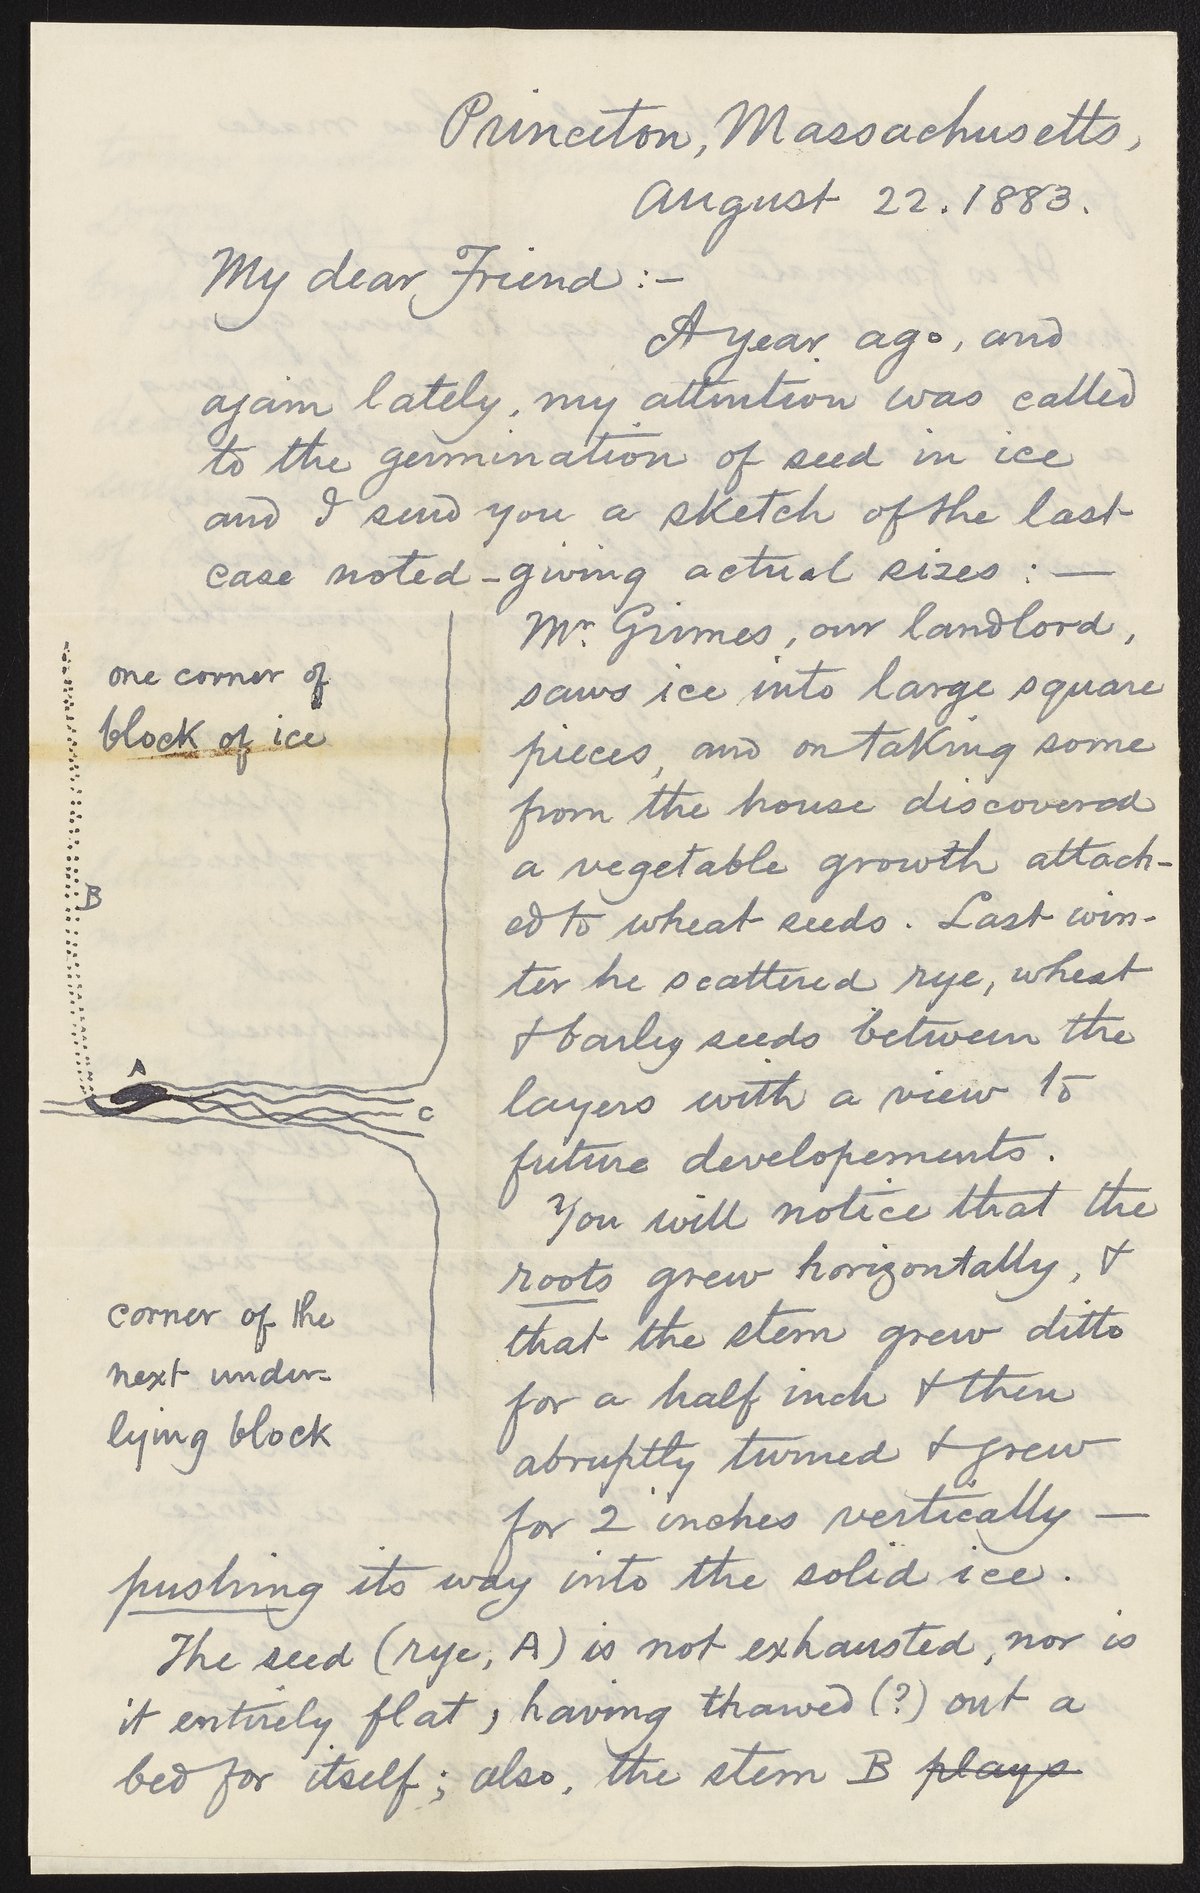 Princeton, Massachusetts,
August 22. 1883.
My dear Friend :-
A year ago, and
again lately, my attention was called
to the germination of seed in ice
and I send you a sketch of the last
case noted - giving actual sizes : —
Mr. Grimes, our landlord,
saws ice into large square
pieces, and on taking some
from the house discovered
a vegetable growth attach-
ed to wheat seeds. Last win-
ter he scattered rye, wheat
& barley seeds between the
layers with a view to
future developements.
You will notice that the
roots grew horizontally, &
that the stem grew ditto
for a half inch & then
abruptly turned & grew
for 2 inches vertically —
pushing its way into the solid ice.
The seed (rye, A) is not exhausted, nor is
it entirely flat, having thawed (?) out a
bed for itself; also, the stem B plays
one corner of
block of ice
B
A
C
corner of the
next under-
lying block